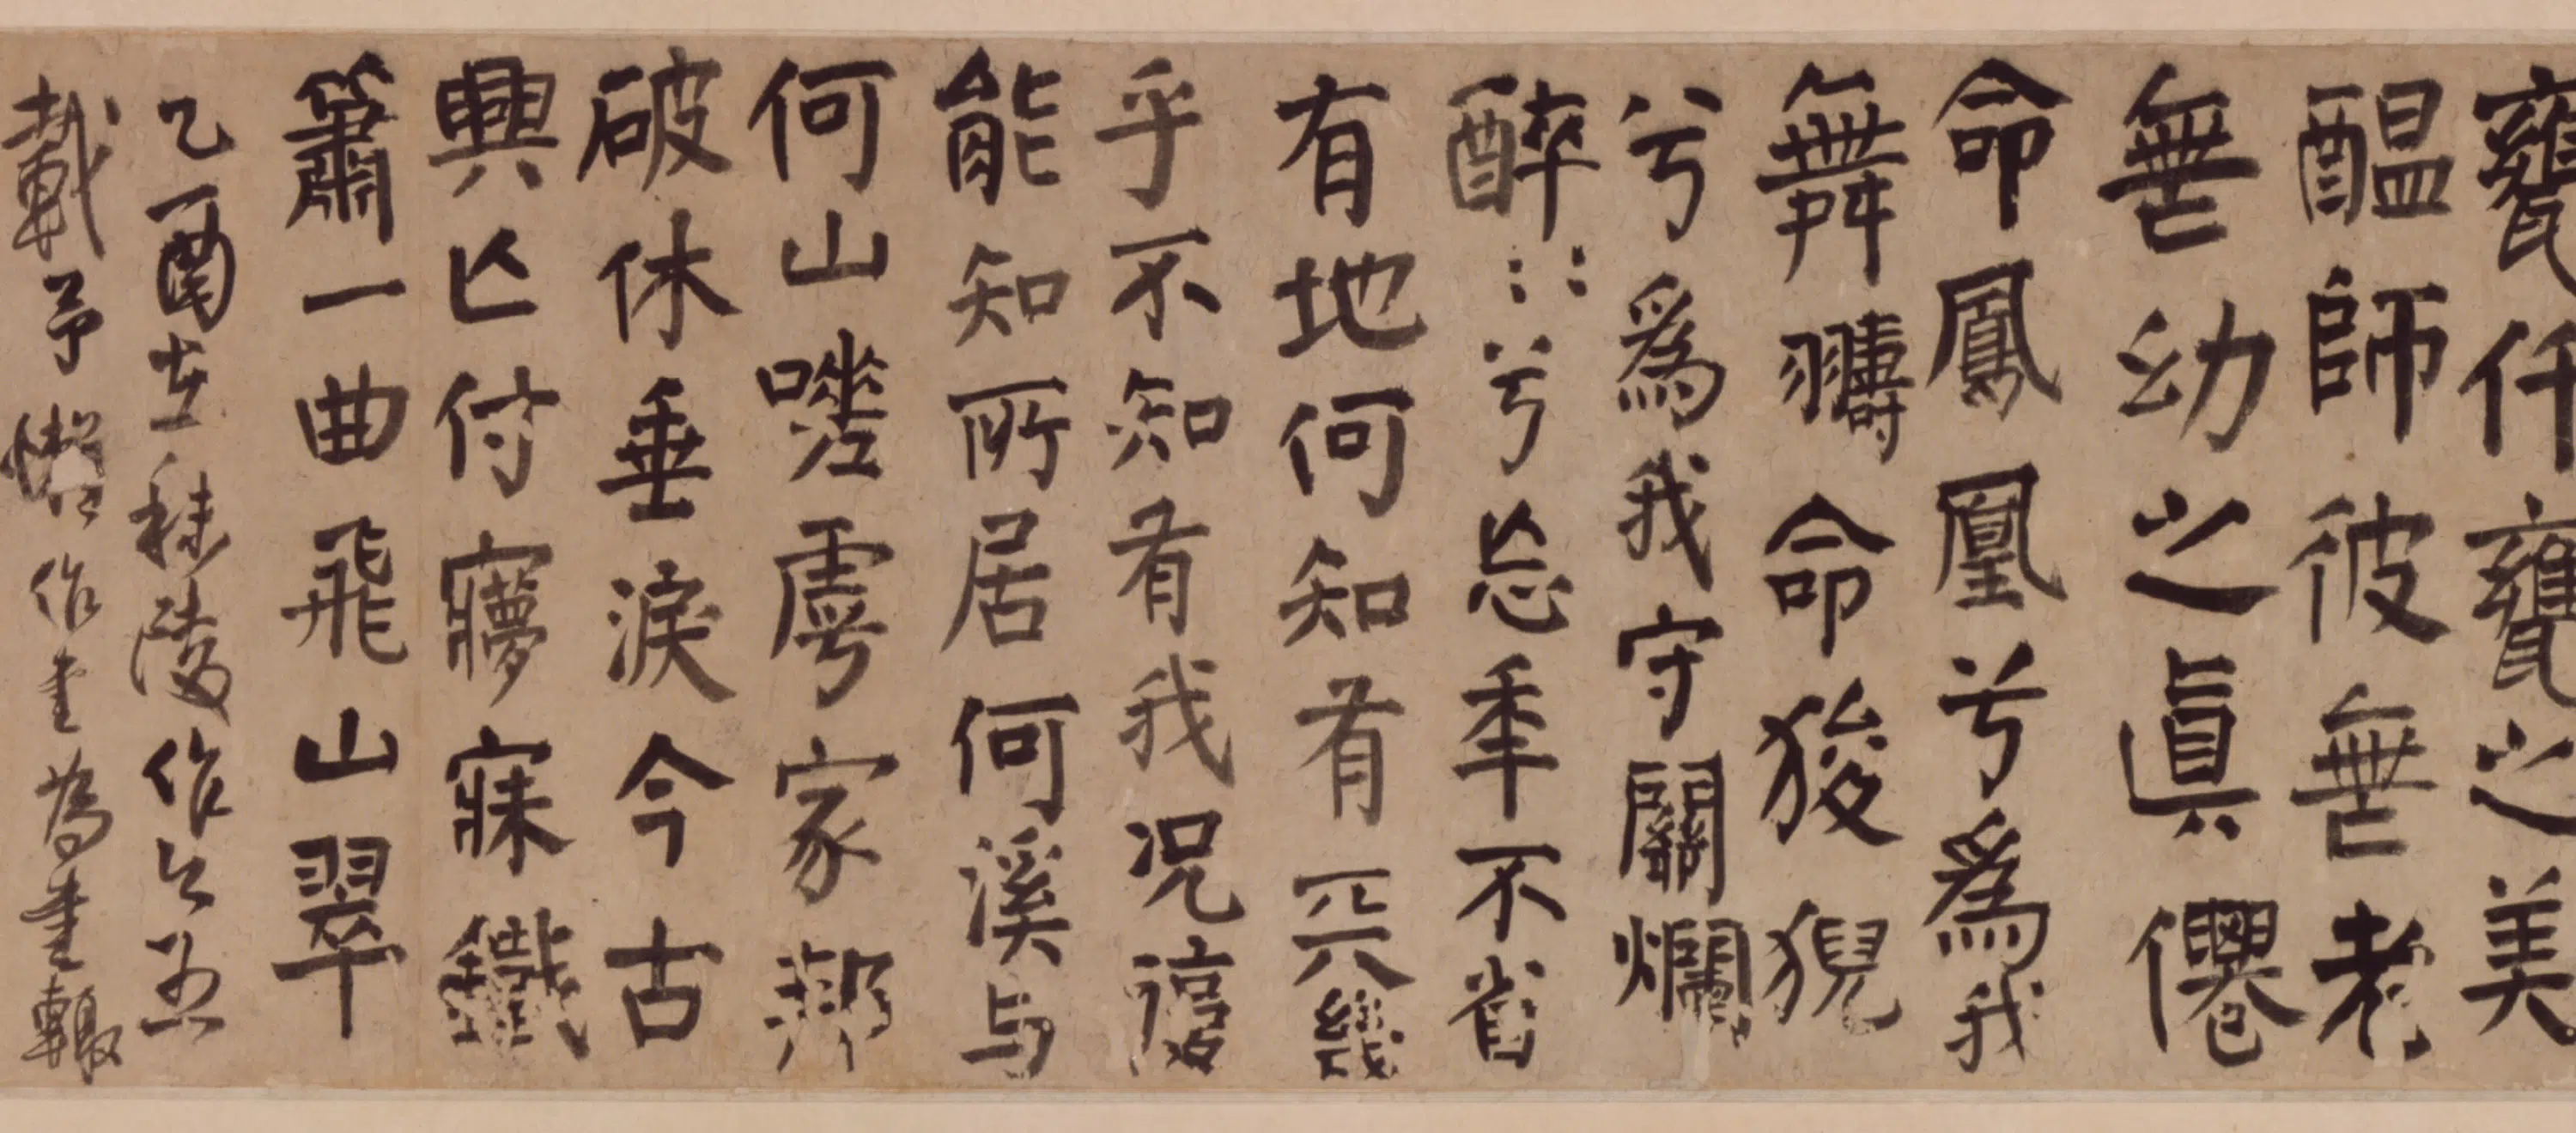 甕仟甕之美
醖師彼無老
無幼之眞僊
命鳳凰兮爲我
舞翿命狻猊
兮爲我守關爛
醉::兮忘秊不省
有地何知有天幾
乎不知有我況複
能知所居何溪与
何山嗟虖家
破休垂淚今古
興亾付寱寐鐵
簫一曲飛山翠
乙酉在秣陵作今
載予懶作書為書輟